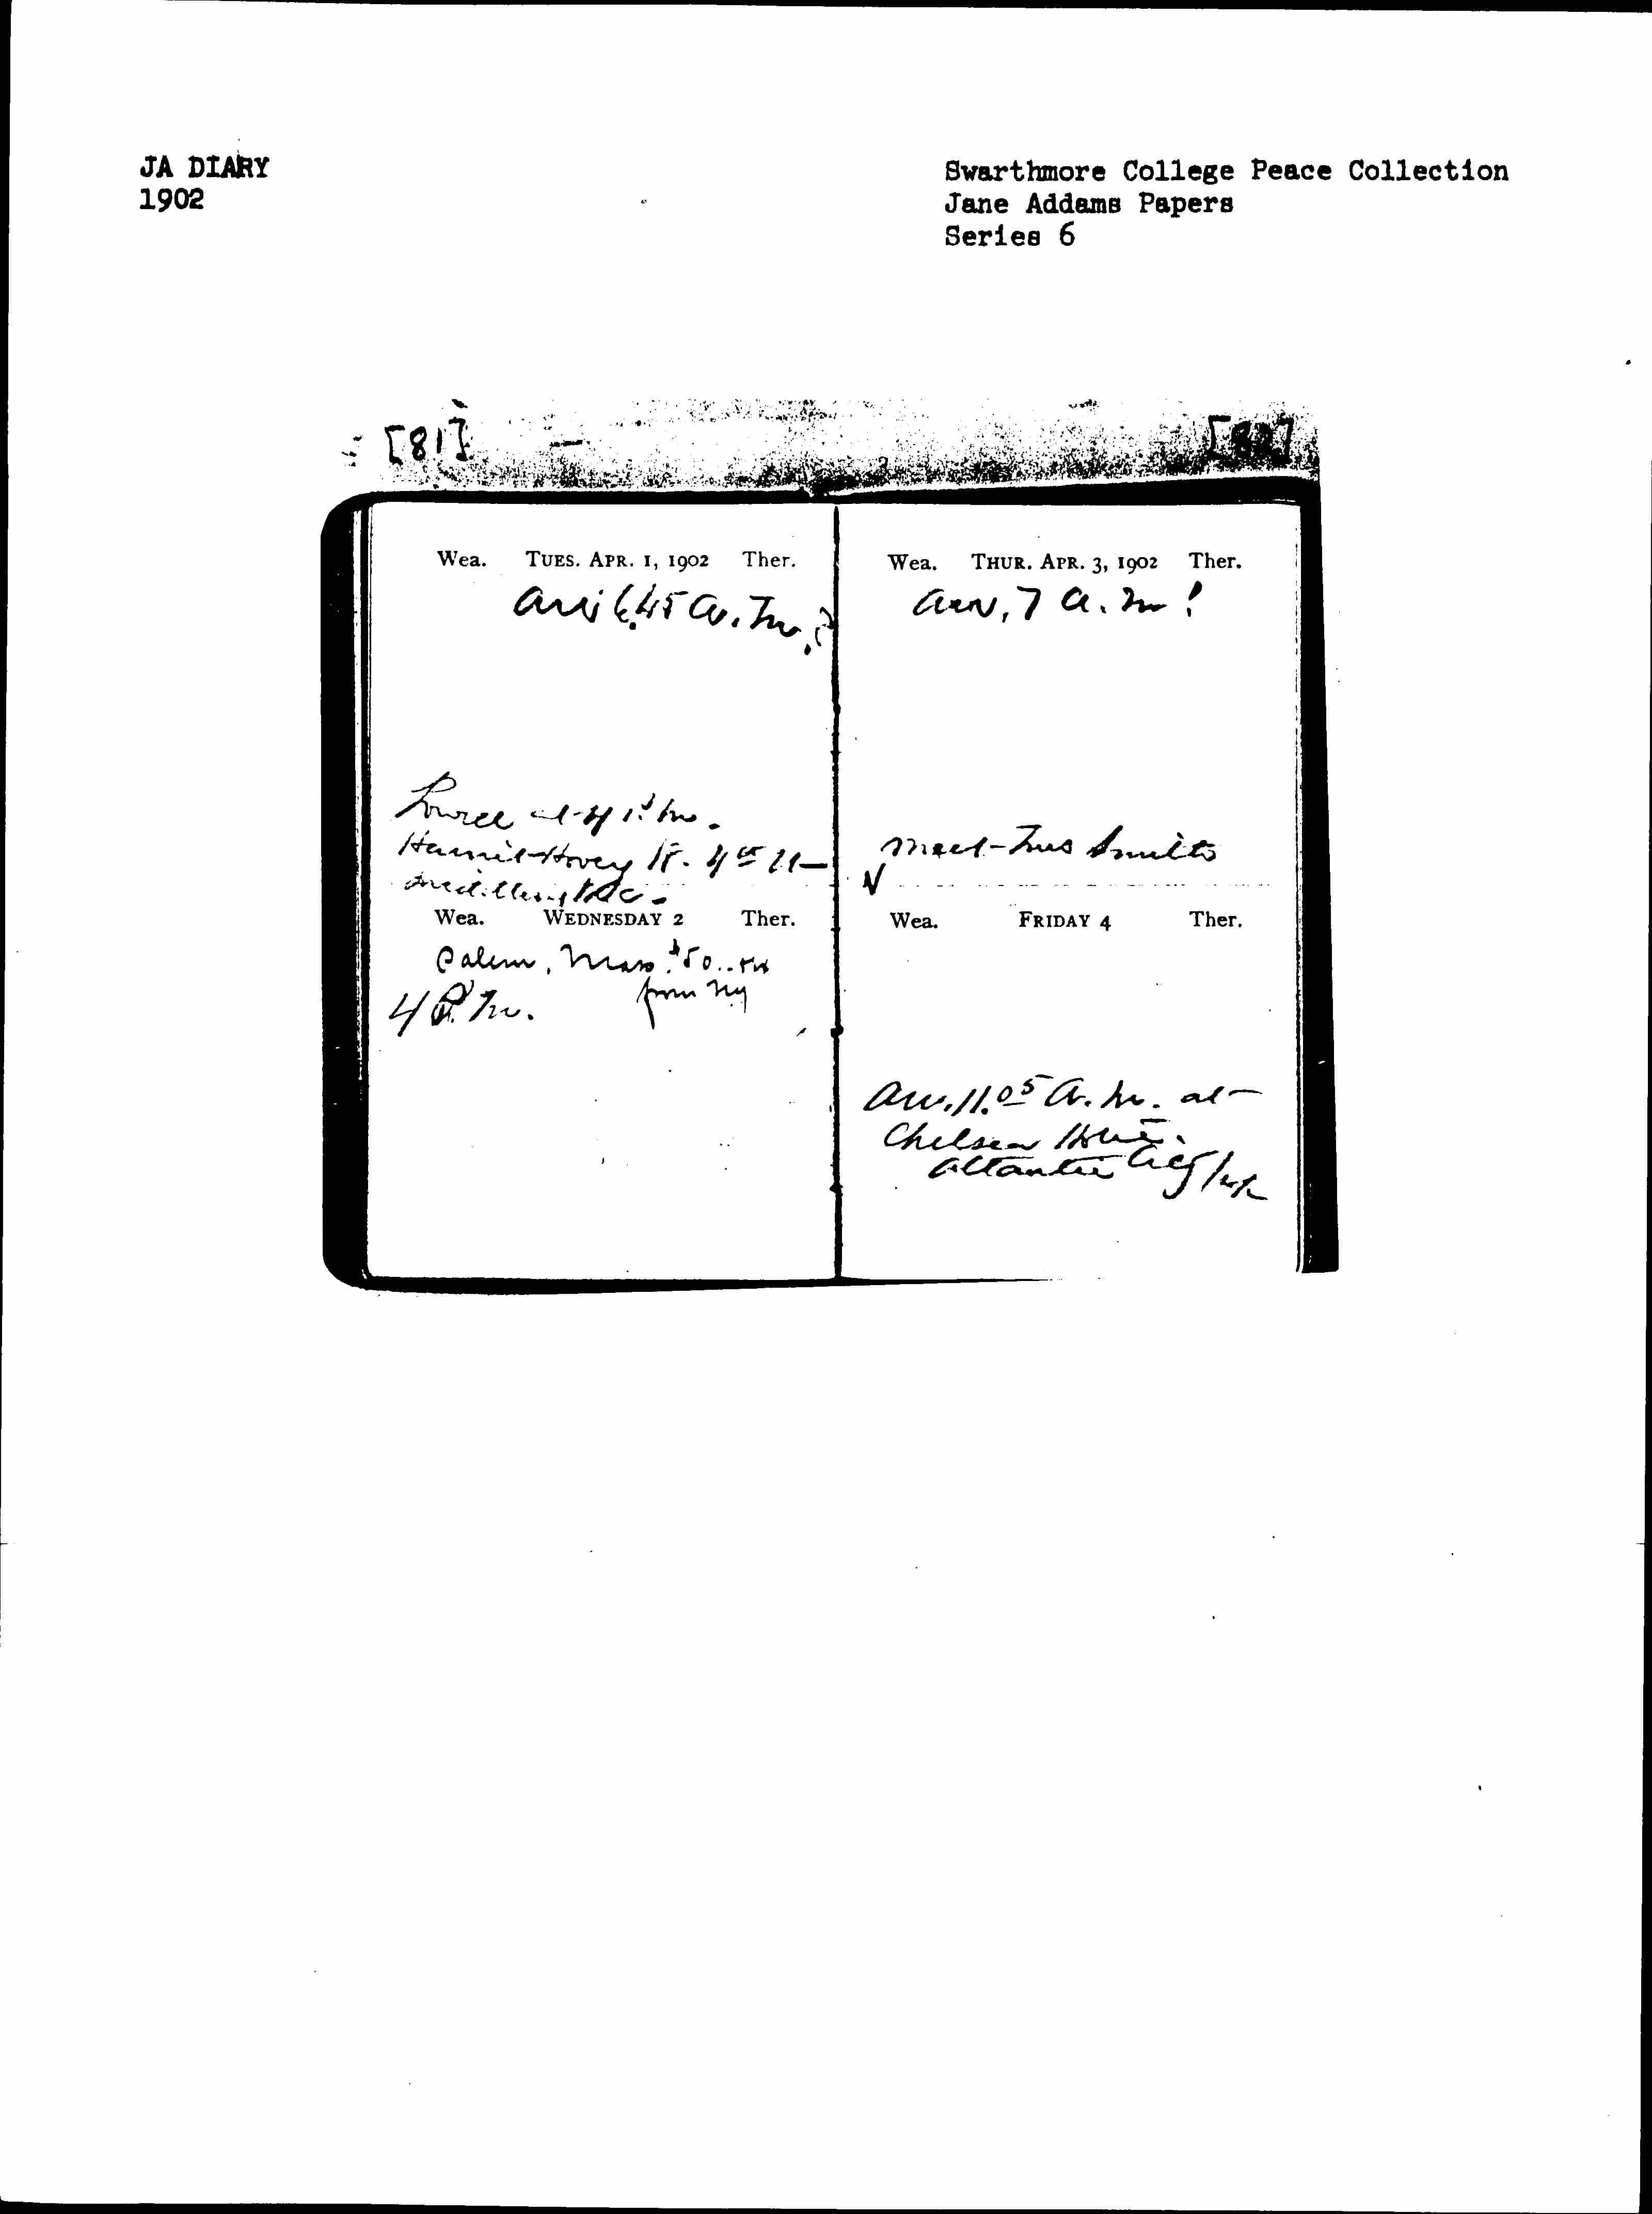 JA DIARY
1902
Swarthmore College Peace Collection
Jane Addams Papers
Series 6
[81]
[82]
Wea. TUES. APR. 1, 1902 Ther.
Arri 6.45 A.M.?
Lowell at 4 P.M.
Hovey
Wea. WEDNESDAY 2 Ther.
Salem, Mass. $50..
from NY
4 P.M.
Wea. THUR. APR. 3, 1902 Ther.
Arr. 7 A.M!
Meet Miss Smith
Wea. FRIDAY 4 Ther.
Arr. 11.05 A.M. at
Chelsea
Atlantic City